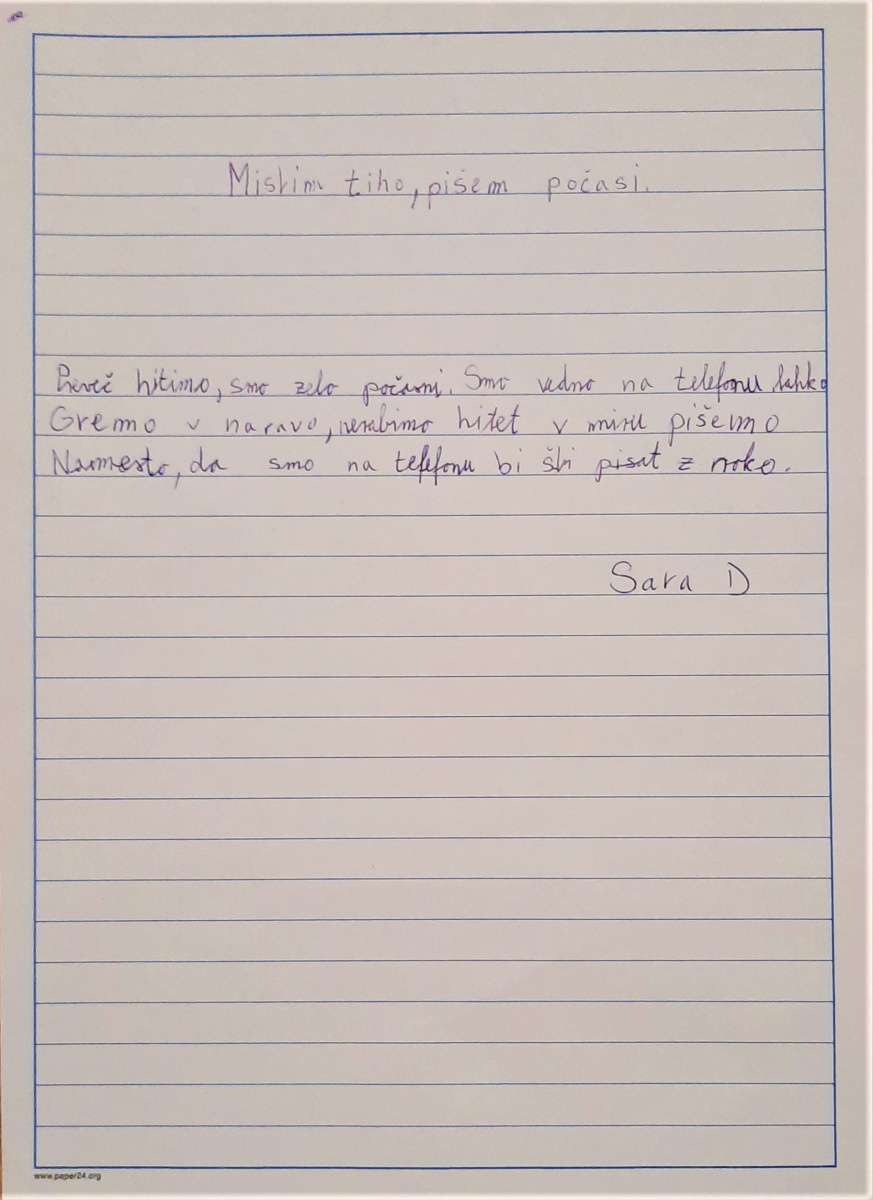 Mislim tiho, pišem počasi.
Preveč hitimo, smo zelo počasni. Smo vedno na telefonu, lahko
Gremo v naravo, nerabimo hitet v miru pišemo
Namesto, da smo na telefonu bi šli pisat z roko.
Sara D
www.paper24.org